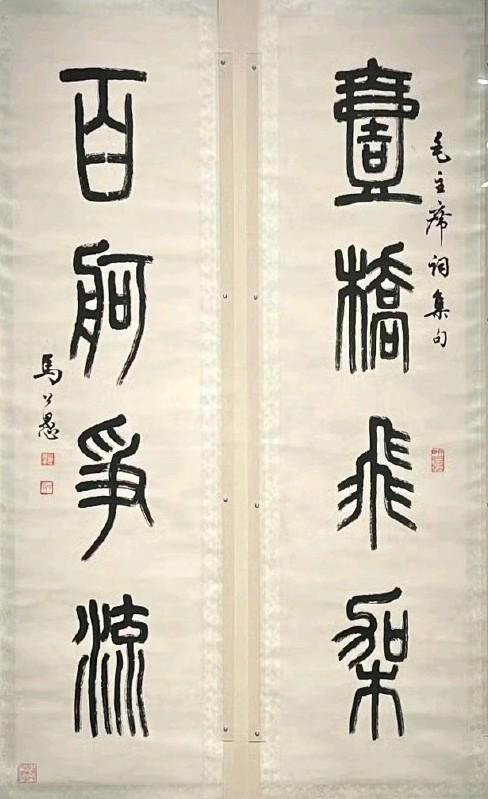 毛主席詞集句
壹橋飛架
百舸爭流
馬公愚